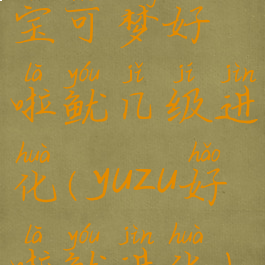 宝可梦好
lā yóu jǐ jí jìn
啦鱿几级进
huà hǎo
化(yuzu好
lā yóu jìn huà
啦鱿进化)